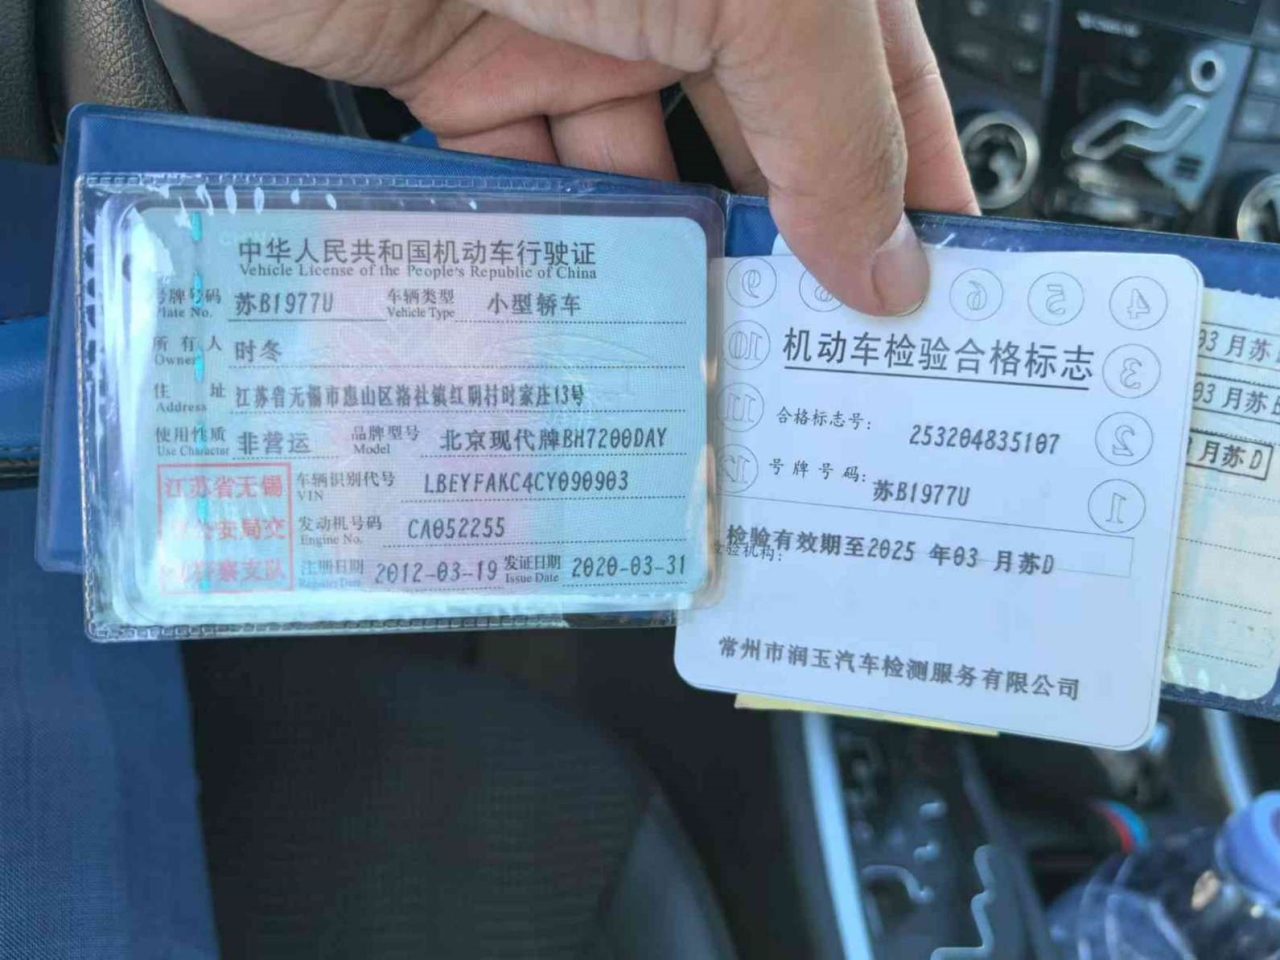 中华人民共和国机动车行驶证
Vehicle License of the People's Republic of China
号牌号码 苏B1977U 车辆类型 小型轿车
Plate No. Vehicle Type
所有人 时冬
Owner
住址 江苏省无锡市惠山区洛社镇红明村时家庄13号
Address
使用性质 非营运 品牌型号 北京现代牌BH7200DAY
Use Character Model
车辆识别代号 LBEYFAKC4CY090903
VIN
发动机号码 CA052255
Engine No.
注册日期 2012-03-19 发证日期 2020-03-31
Register Date Issue Date
江苏省无锡
公安局交
警察支队
9 8 6 5 4
10 3
11 2
12 1
机动车检验合格标志
合格标志号: 253204835107
号牌号码: 苏B1977U
检验有效期至2025 年03 月苏D
检验机构:
常州市润玉汽车检测服务有限公司
03 月苏
03 月苏
月苏D